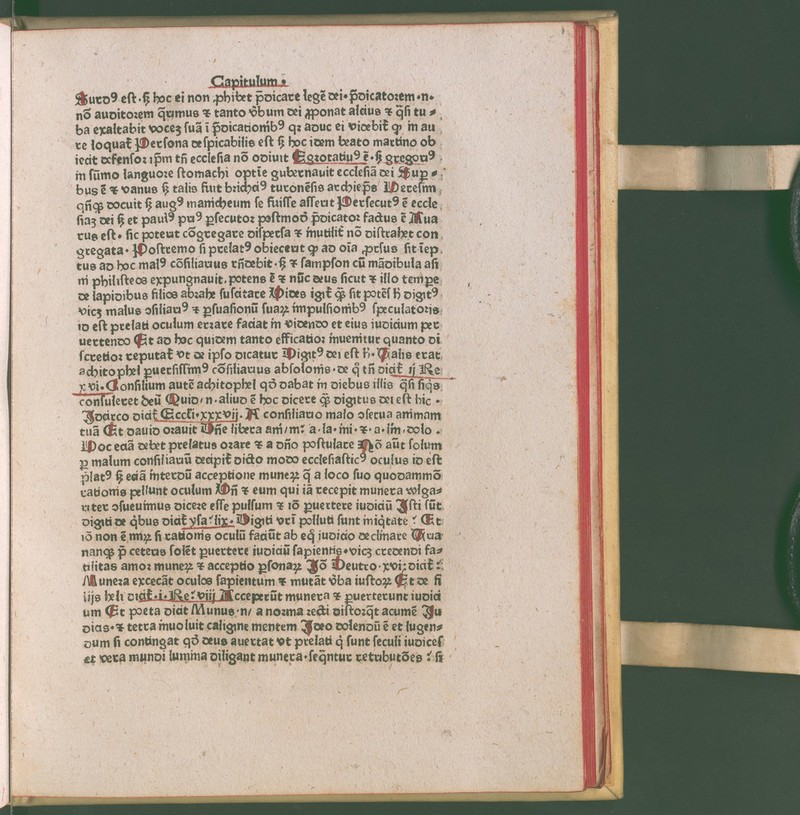 Capitulum.
Surdꝰ est. sꝫ hoc ei non ꝓhibet p̄dicare legē dei. p̄dicatorem .n.
nō auditorem q̄rimus ⁊ tanto v̄bum dei ꝓponat alcius ⁊ q̄si tu⸗
ba exaltabit vocez suā ī p̄dicatiōibꝰ qꝛ aduc ei videbit̄ ꝙ in au
re loquat̄ Persona despicabilis est sꝫ hoc idem beato martino ob
iecit defensor ip̄m tn̄ ecclesia nō odiuit Egrotatiuꝰ ē. sꝫ gregorꝰ
in sūmo languore stomachi optīe gubernauit ecclesiā dei Sup⸗
bus ē ⁊ vanus sꝫ talis fuit brichciꝰ turonēsis archiep̄s Heresim
qn̄qꝫ docuit sꝫ augꝰ manicheum se fuisse asserit Persecutꝰ ē eccle
siaz dei sꝫ et paulꝰ priꝰ ꝑsecutor postmodū p̄dicator factus ē Aua
rus est. sic poterit cōgregare dispersa ⁊ inutilit̄ nō distrahet con
gregata. Postremo si prelatꝰ obiecerit ꝙ ad oīa ꝓrsus sit īep
tus ad hoc malꝰ cōsiliarius rn̄debit. sꝫ ⁊ sampson cū mādibula asi
ni philisteos expungnauit. potens ē ⁊ nūc deus sicut ⁊ illo tempe
de lapidibus filios abrahe suscitare Vides igit̄ q̄ꝫ sit potēs h̄ digitꝰ
vicꝫ malus ↄsiliariꝰ ⁊ ꝑsuasionū suaꝝ impulsionibꝰ speculatoris
id est prelati oculum errare faciat in videndo et eius iudicium per
uertendo Et ad hoc quidem tanto efficatior inuenitur quanto di
scretior reputat̄ vt de ipso dicatur Digitꝰ dei est h̄. Talis erat
achitophel ꝑuersissimꝰ cōsiliarius absolonis. de q̄ tn̄ dicit̄ ij Re
xvi. Consilium autē achitophel qd̄ dabat in diebus illis q̄si siq̄s
consuleret deū Quid .n. aliud ē hoc dicere q̄ꝫ digitus dei est hic.
Idcirco dicit̄ Eccli. xxxvij. A consiliario malo ↄserua animam
tuā Et dauid orauit Dn̄e libera am̄ m̄. a. la. īni. ⁊. a. līn. dolo.
Hoc eciā debet prelatus orare ⁊ a dn̄o postulare Nō aūt solum
ꝑ malum consiliariū decipit̄ dicto modo ecclesiasticꝰ oculus id est
p̄latꝰ sꝫ eciā interdū acceptione muneꝝ q̄ a loco suo quodammō
rationis pellunt oculum Vn̄ ⁊ eum qui iā recepit munera wlga⸗
riter ↄsueuimus dicere esse pulsum ⁊ iō ꝑuertere iudiciū Isti sūt
digiti de qibus dicit̄ ysa. lix. Digiti vr̄i polluti sunt iniq̄tate: Et
iō non ē miꝝ si rationis oculū faciūt ab eq̄ iudicio declinare Qua
nanqꝫ p̄ ceteris solēt ꝑuertere iudiciū sapientis. vicꝫ credendi fa⸗
cilitas amor muneꝝ ⁊ acceptio ꝑsonaꝝ Iō Deutro. xvi: dicit̄:
Munera excecāt oculos sapientum ⁊ mutāt v̄ba iustoꝝ Et de fi
lijs heli dicit̄. i. Re. viij Acceperūt munera ⁊ ꝑuerterunt iudici
um Et poeta dicit Munus .n. a norma recti distorq̄t acumē Iu
dicis. ⁊ tetra inuoluit caligine mentem Ideo dolendū ē et lugen⸗
dum si contingat qd̄ deus auertat vt prelati q̄ sunt seculi iudices
et vera mundi lumina diligant munera. seq̄ntur retributōes: si